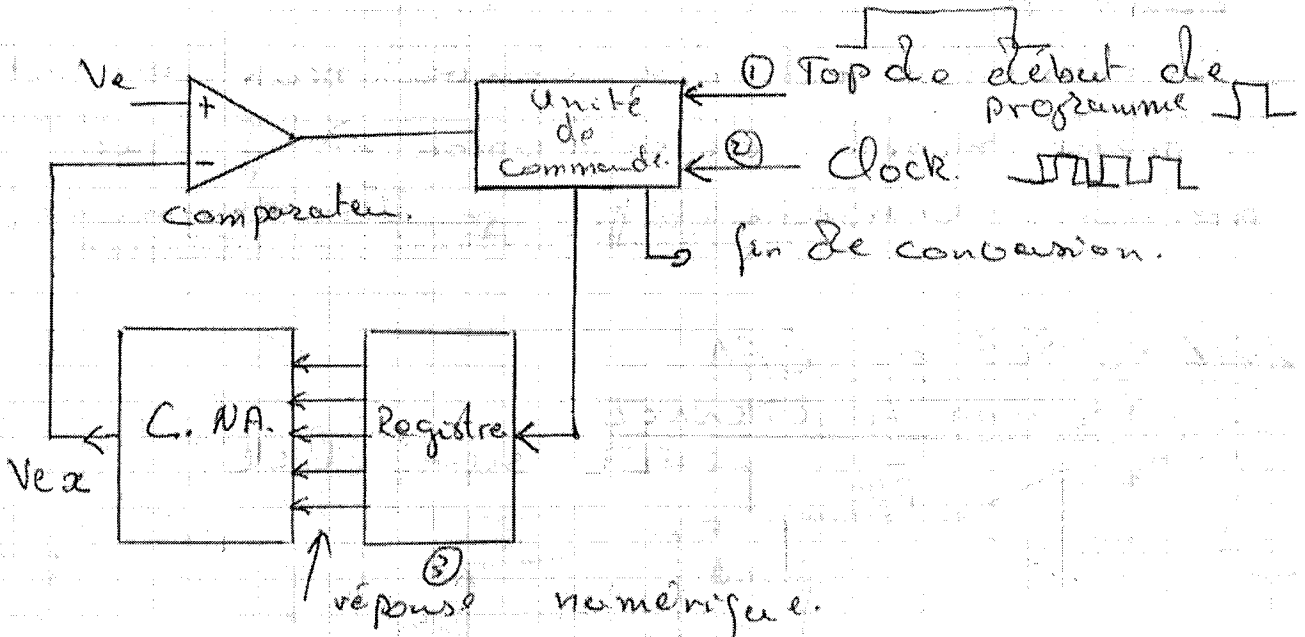 Ve
+
-
comparateur.
Unité
de
commande.
① Top de début de
programme
② Clock.
fin de conversion.
C. NA.
Registre
Vex
③
réponse numérique.